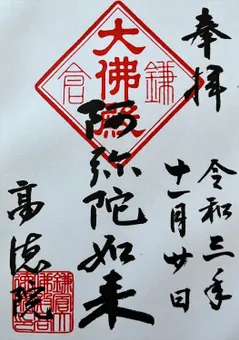 奉拝
令和三年
十一月廿日
大佛殿
鎌倉
阿弥陀如来
高徳院